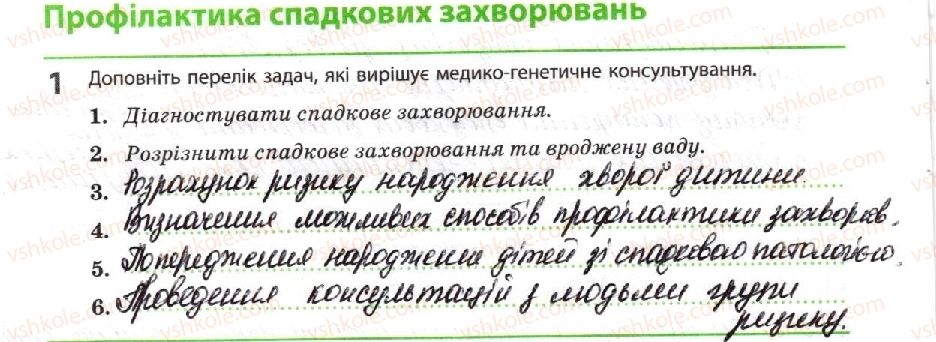 Профілактика спадкових захворювань
1 Доповніть перелік задач, які вирішує медико-генетичне консультування.
1. Діагностувати спадкове захворювання.
2. Розрізнити спадкове захворювання та вроджену ваду.
3. Розрахунок ризику народження хворої дитини.
4. Визначення можливих способів профілактики захворюв.
5. Попередження народження дітей зі спадковою патологією.
6. Проведення консультацій з людьми групи
ризику.